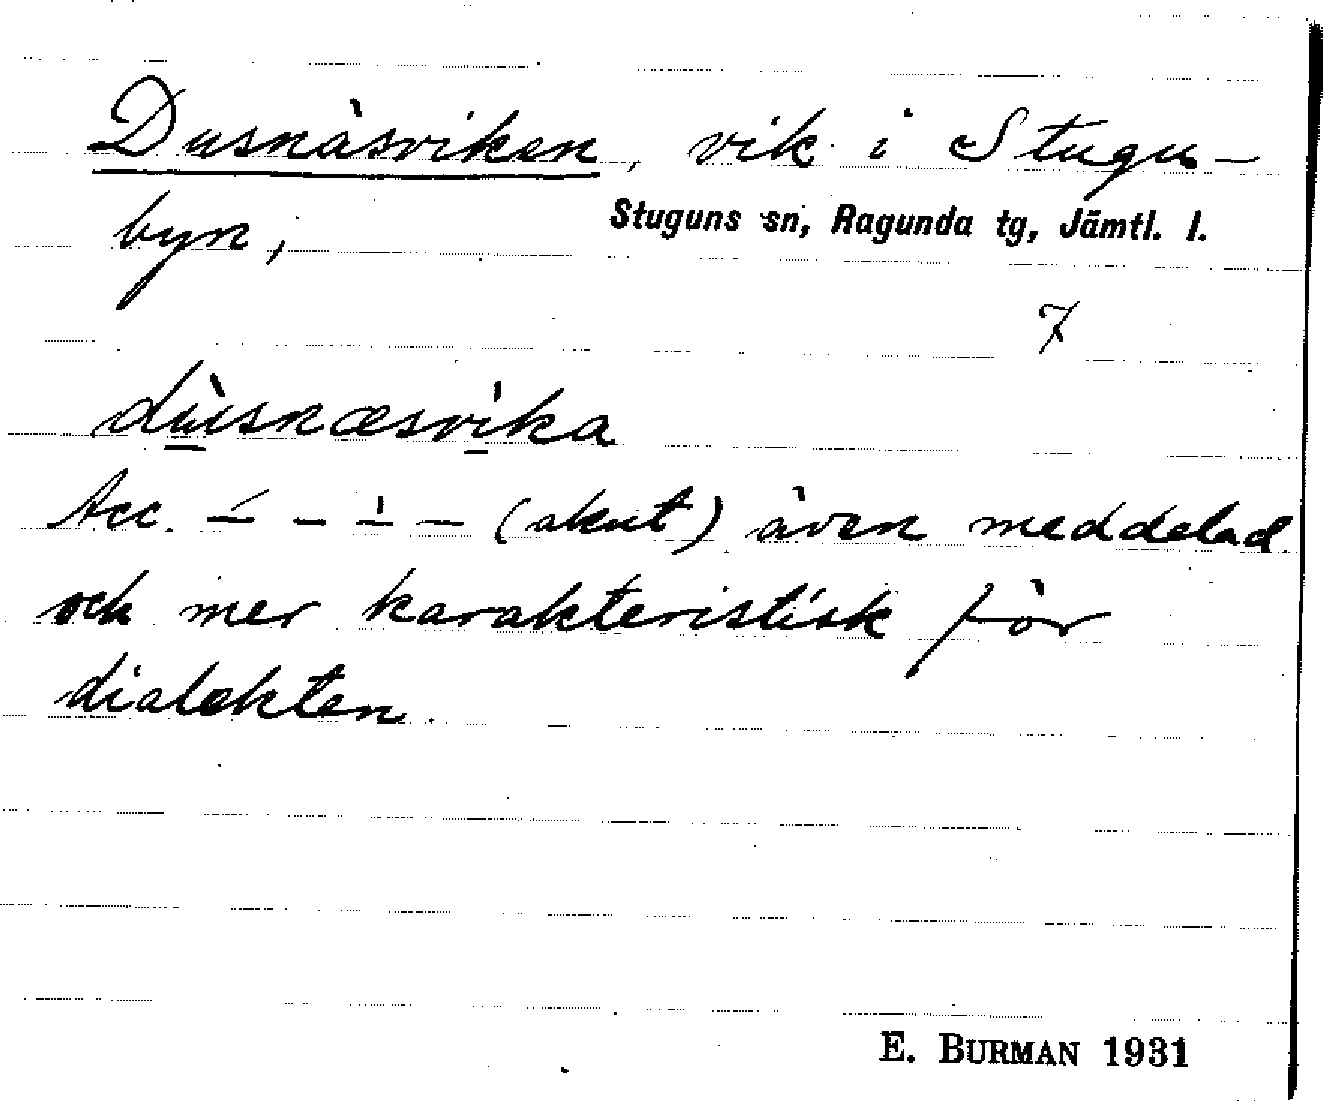 Dusnäsviken, vik i Stugu-
byn,
Stuguns sn, Ragunda tg, Jämtl. l.
7
dùsnæsvika
Acc. – – – – (akut) även meddelad
och mer karakteristisk för
dialekten.
E. BURMAN 1931